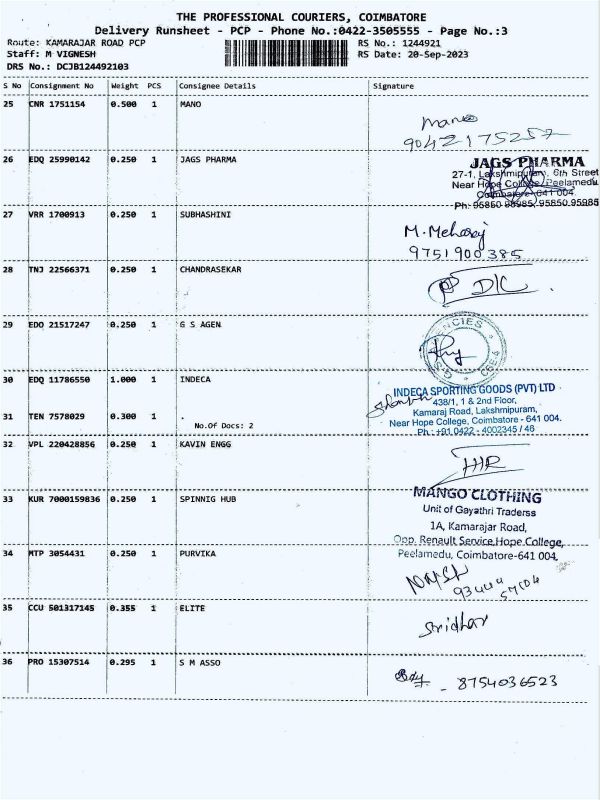 THE PROFESSIONAL COURIERS, COIMBATORE
Delivery Runsheet - PCP - Phone No.:0422-3505555 - Page No.:3
Route: KAMARAJAR ROAD PCP RS No.: 1244921
Staff: M VIGNESH RS Date: 20-Sep-2023
DRS No.: DCJB124492103
S No Consignment No Weight PCS Consignee Details Signature
25 CNR 1751154 0.500 1 MANO
Mano
90421 75257
26 EDQ 25990142 0.250 1 JAGS PHARMA
JAGS PHARMA
27-1, Lakshmipuram, 6th Street
Near Hope College, Peelamedu
Coimbatore - 641 004.
Ph: 95850 95985, 95850 95985
27 VRR 1700913 0.250 1 SUBHASHINI
M. Meharaj
9751900385
28 TNJ 22566371 0.250 1 CHANDRASEKAR
D/C
29 EDO 21517247 0.250 1 G S AGEN
30 EDQ 11786550 1.000 1 INDECA
INDECA SPORTING GOODS (PVT) LTD
438/1, 1 & 2nd Floor,
Kamaraj Road, Lakshmipuram,
Near Hope College, Coimbatore - 641 004.
Ph : +91 0422 - 4002345 / 46
31 TEN 7578029 0.300 1 .
No.Of Docs: 2
32 VPL 220428856 0.250 1 KAVIN ENGG
33 KUR 7000159836 0.250 1 SPINNIG HUB
MANGO CLOTHING
Unit of Gayathri Traderss
1A, Kamarajar Road,
Opp. Renault Service, Hope College,
Peelamedu, Coimbatore-641 004.
34 MTP 3054431 0.250 1 PURVIKA
35 CCU 501317145 0.355 1 ELITE
Sridhar
36 PRO 15307514 0.295 1 S M ASSO
8754036523